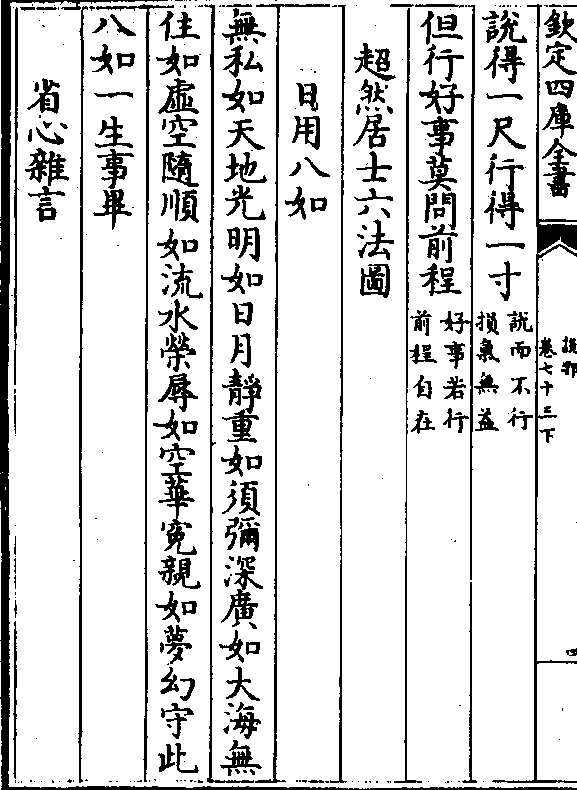 欽定四庫全書
說郛
卷七十三下
四
說得一尺行得一寸
說而不行
損氣無益
但行好事莫問前程
好事若行
前程自在
超然居士六法圖
日用八如
無私如天地光明如日月靜重如須彌深廣如大海無
住如虛空隨順如流水榮辱如空華寃親如夢幻守此
八如一生事畢
省心雜言